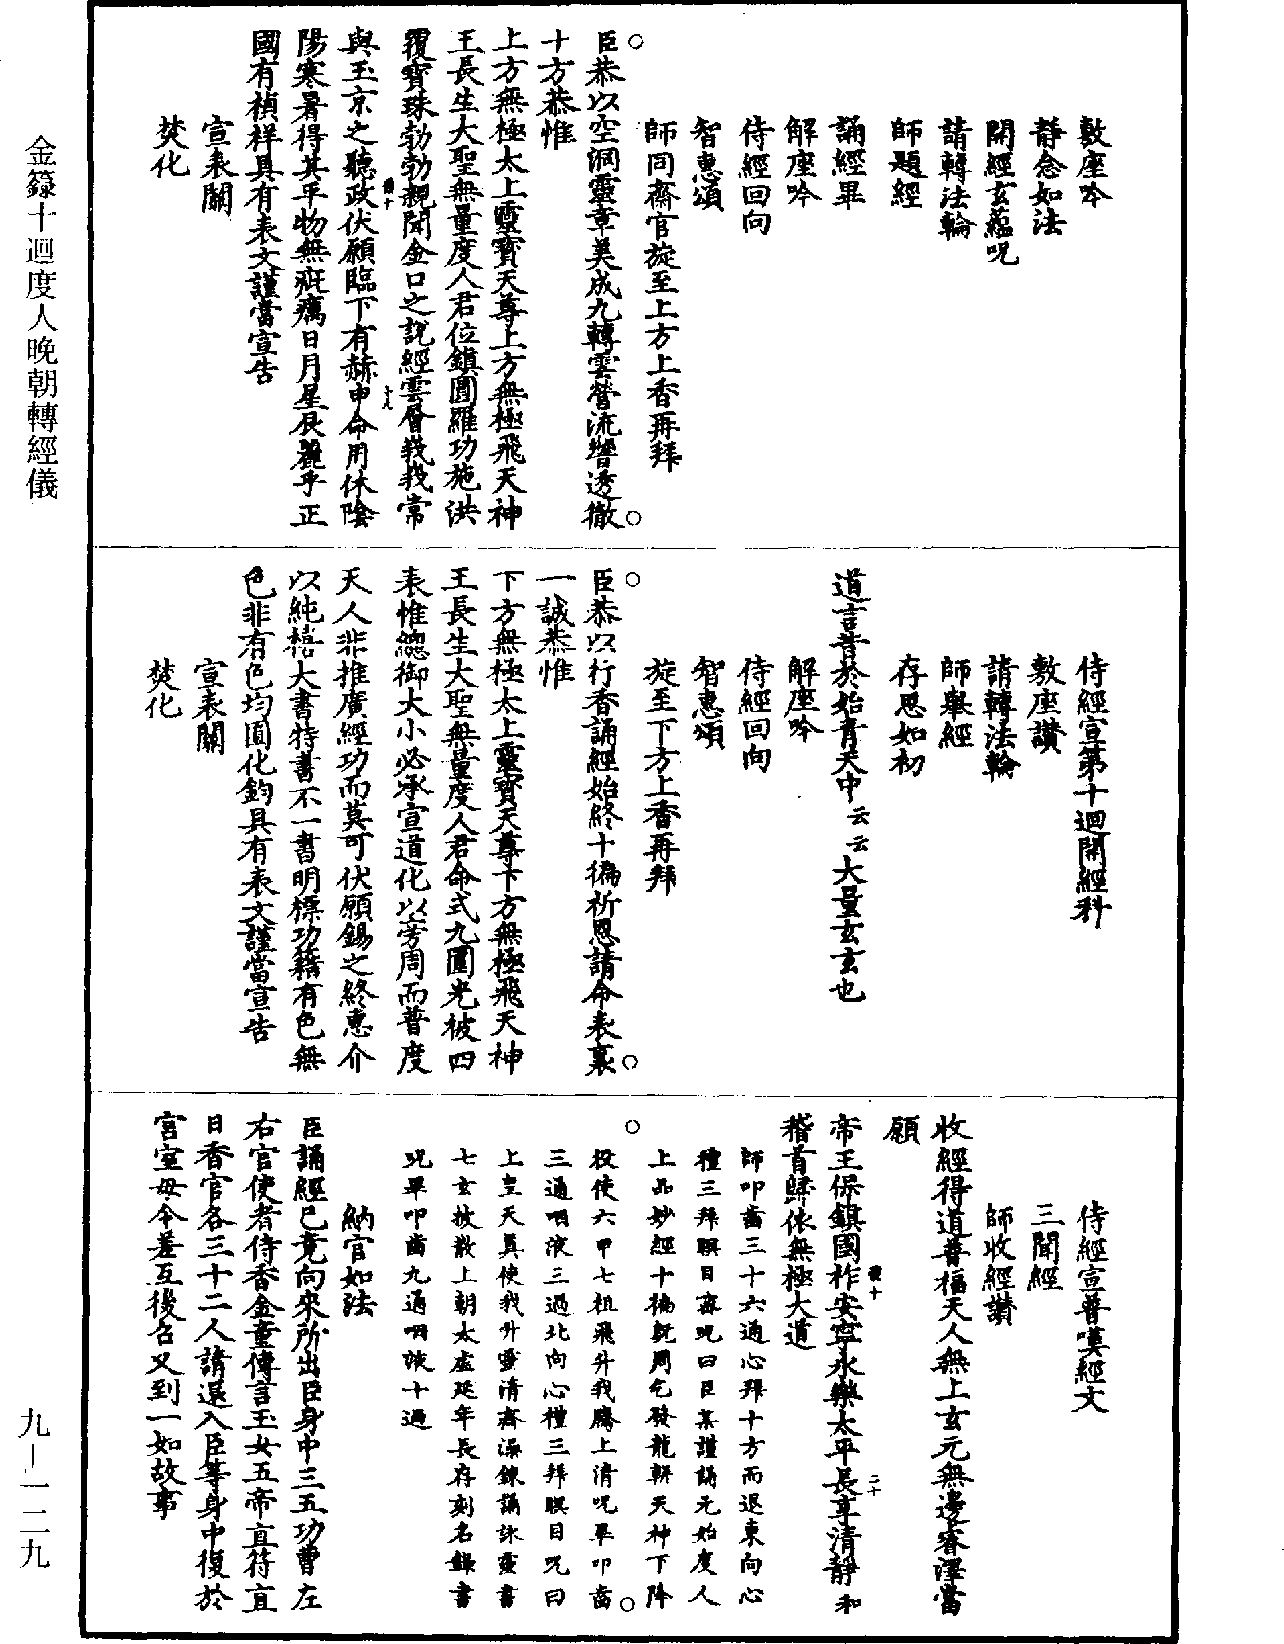 敷座吟
靜念如法
開經玄蘊呪
請轉法輪
師題經
誦經畢
解座吟
侍經回向
智惠頌
師同齋官旋至上方上香再拜
臣恭以空洞靈章美成九轉雲營流響透徹
十方恭惟
上方無極太上靈寶天尊上方無極飛天神
王長生大聖無量度人君位鎮圓羅功施洪
覆寶珠勃勃親聞金口之說經雲層峩峩常
與玉京之聽政伏願臨下有赫申命用休陰
陽寒暑得其平物無疵癘日月星辰麗乎正
國有禎祥具有表文謹當宣告
宣表關
焚化
侍經宣第十迴開經科
敷座讚
請轉法輪
師舉經
存思如初
道言昔於始青天中云云大量玄玄也
解座吟
侍經回向
智惠頌
旋至下方上香再拜
臣恭以行香誦經始終十徧祈恩請命表裏
一誠恭惟
下方無極太上靈寶天尊下方無極飛天神
王長生大聖無量度人君命式九圍光被四
表惟總御大小必承宣道化以旁周而普度
天人非推廣經功而莫可伏願錫之終惠介
以純禧大書特書不一書明標功籍有色無
色非有色均囿化鈞具有表文謹當宣告
宣表關
焚化
侍經宣普嘆經文
三聞經
師收經讚
收經得道普福天人無上玄元無邊睿澤當
願
帝王保鎮國祚安寧永樂太平長享清靜和
稽首歸依無極大道
師叩齒三十六通心拜十方而退東向心
禮三拜瞑目密呪曰臣某謹誦元始度人
上品妙經十徧既周乞發龍輧天神下降
役使六甲七祖飛升我騰上清呪畢叩齒
三通咽液三過北向心禮三拜瞑目呪曰
上皇天真使我升靈清齋澡鍊誦詠靈書
七玄披散上朝太虛延年長存刻名錄書
呪畢叩齒九通咽液十過
納官如法
臣誦經已竟向來所出臣身中三五功曹左
右官使者侍香金童傳言玉女五帝直符直
日香官各三十二人請還入臣等身中復於
宮室毋令差互後召又到一如故事
金籙十迴度人晚朝轉經儀
九—一二九